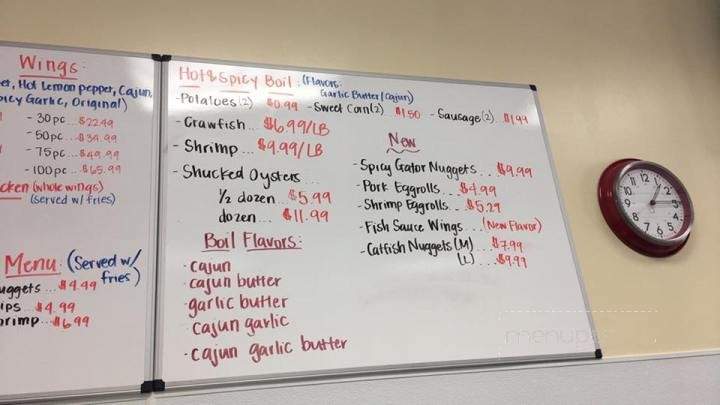 Wings:
Hot Lemon pepper, Cajun,
Garlic, Original)
- 30pc... $22.49
- 50pc... $34.99
- 75pc... $49.99
- 100pc... $65.99
(whole wings)
(Served w/ fries)
Menu: (Served w/ fries)
$4.49
$4.99
$6.99
Hot & Spicy Boil: (Flavors:
Garlic Butter/Cajun)
- Potatoes(2) $0.99 - Sweet Corn(2) $1.50 - Sausage(2) $1.99
- Crawfish... $6.99/LB
- Shrimp... $9.99/LB
- Shucked Oysters...
1/2 dozen... $5.99
dozen... $11.99
Boil Flavors:
- cajun
- cajun butter
- garlic butter
- cajun garlic
- cajun garlic butter
New
- Spicy Gator Nuggets... $9.99
- Pork Eggrolls... $4.99
- Shrimp Eggrolls... $5.29
- Fish Sauce Wings... (New Flavor)
- Catfish Nuggets (M)... $7.99
(L)... $9.99
12
1
2
3
4
5
6
7
8
9
10
11